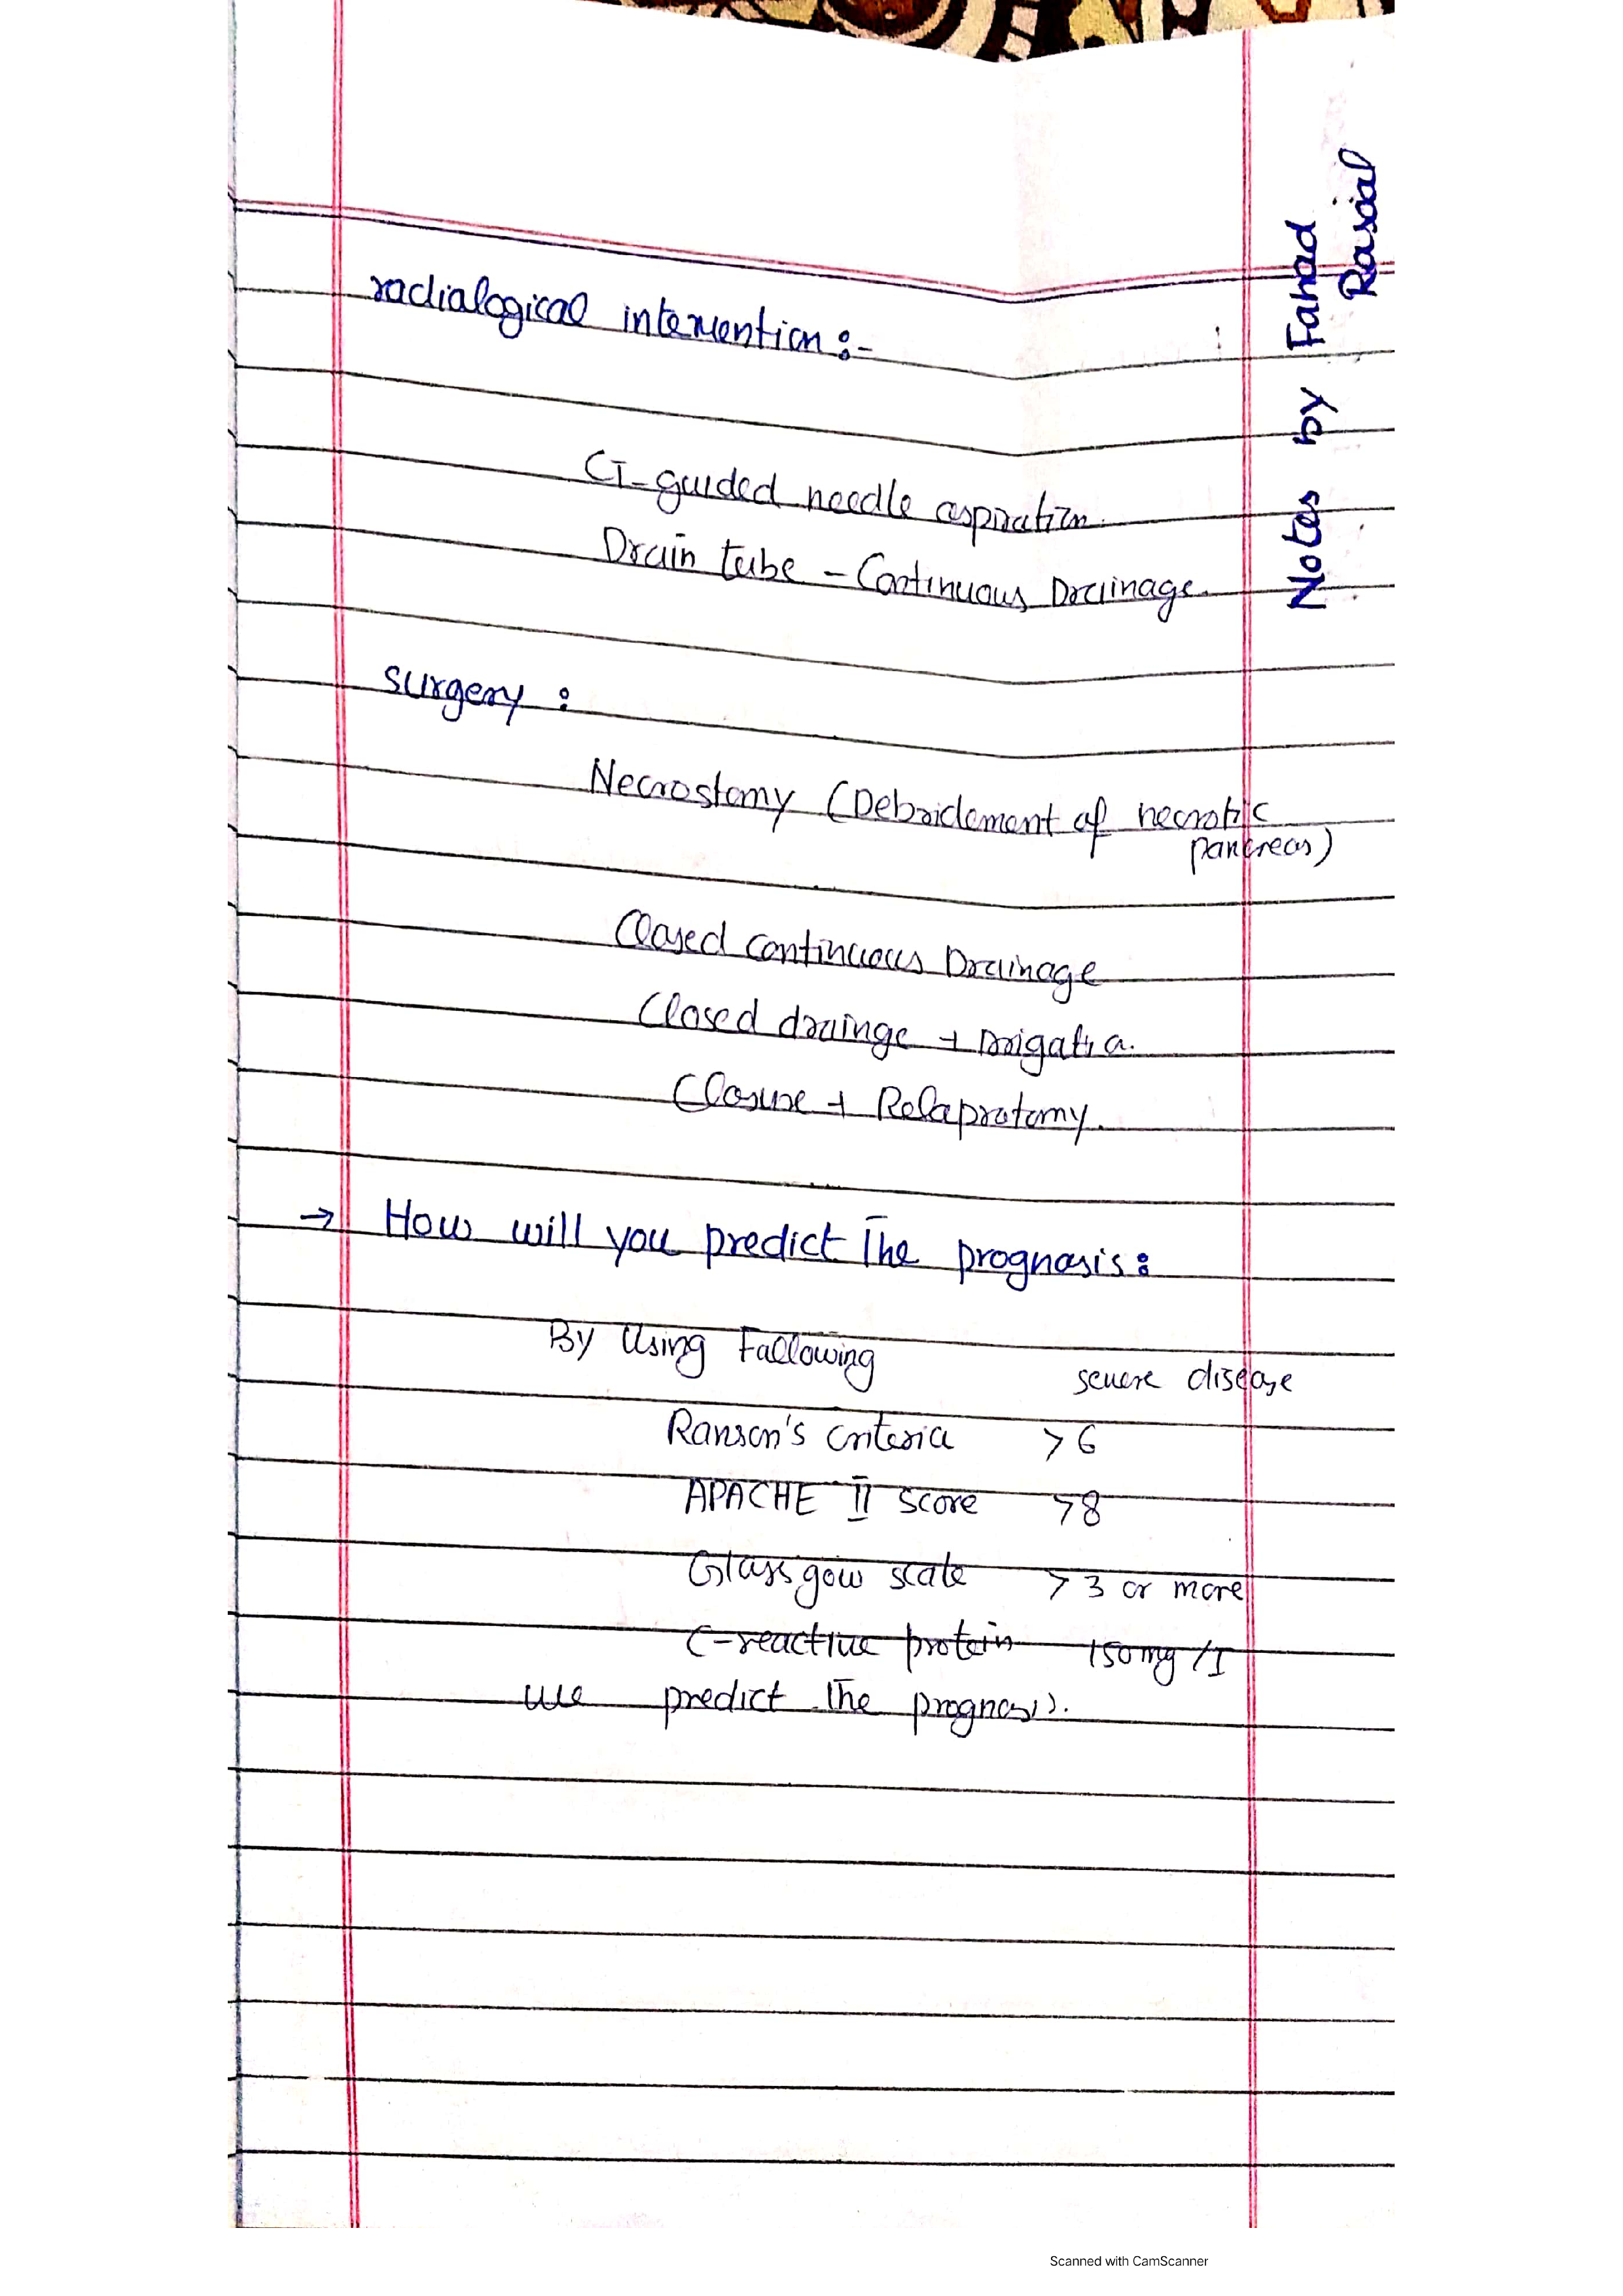 radialogical intervention :-
CT-guided needle aspiration.
Drain tube - Continuous Drainage.
surgery :
Necrostomy (Debridement of necrotic
pancreas)
Closed continuous Drainage
Closed drainge + Irrigation.
Closure + Relaprotomy.
→ How will you predict The prognosis :
By Using Following
severe disease
Ranson's criteria >6
APACHE II score >8
Glassgow scale >3 or more
C-reactive protein 150mg/l
we predict The prognosis.
Notes by Fahad
Rasial
Scanned with CamScanner